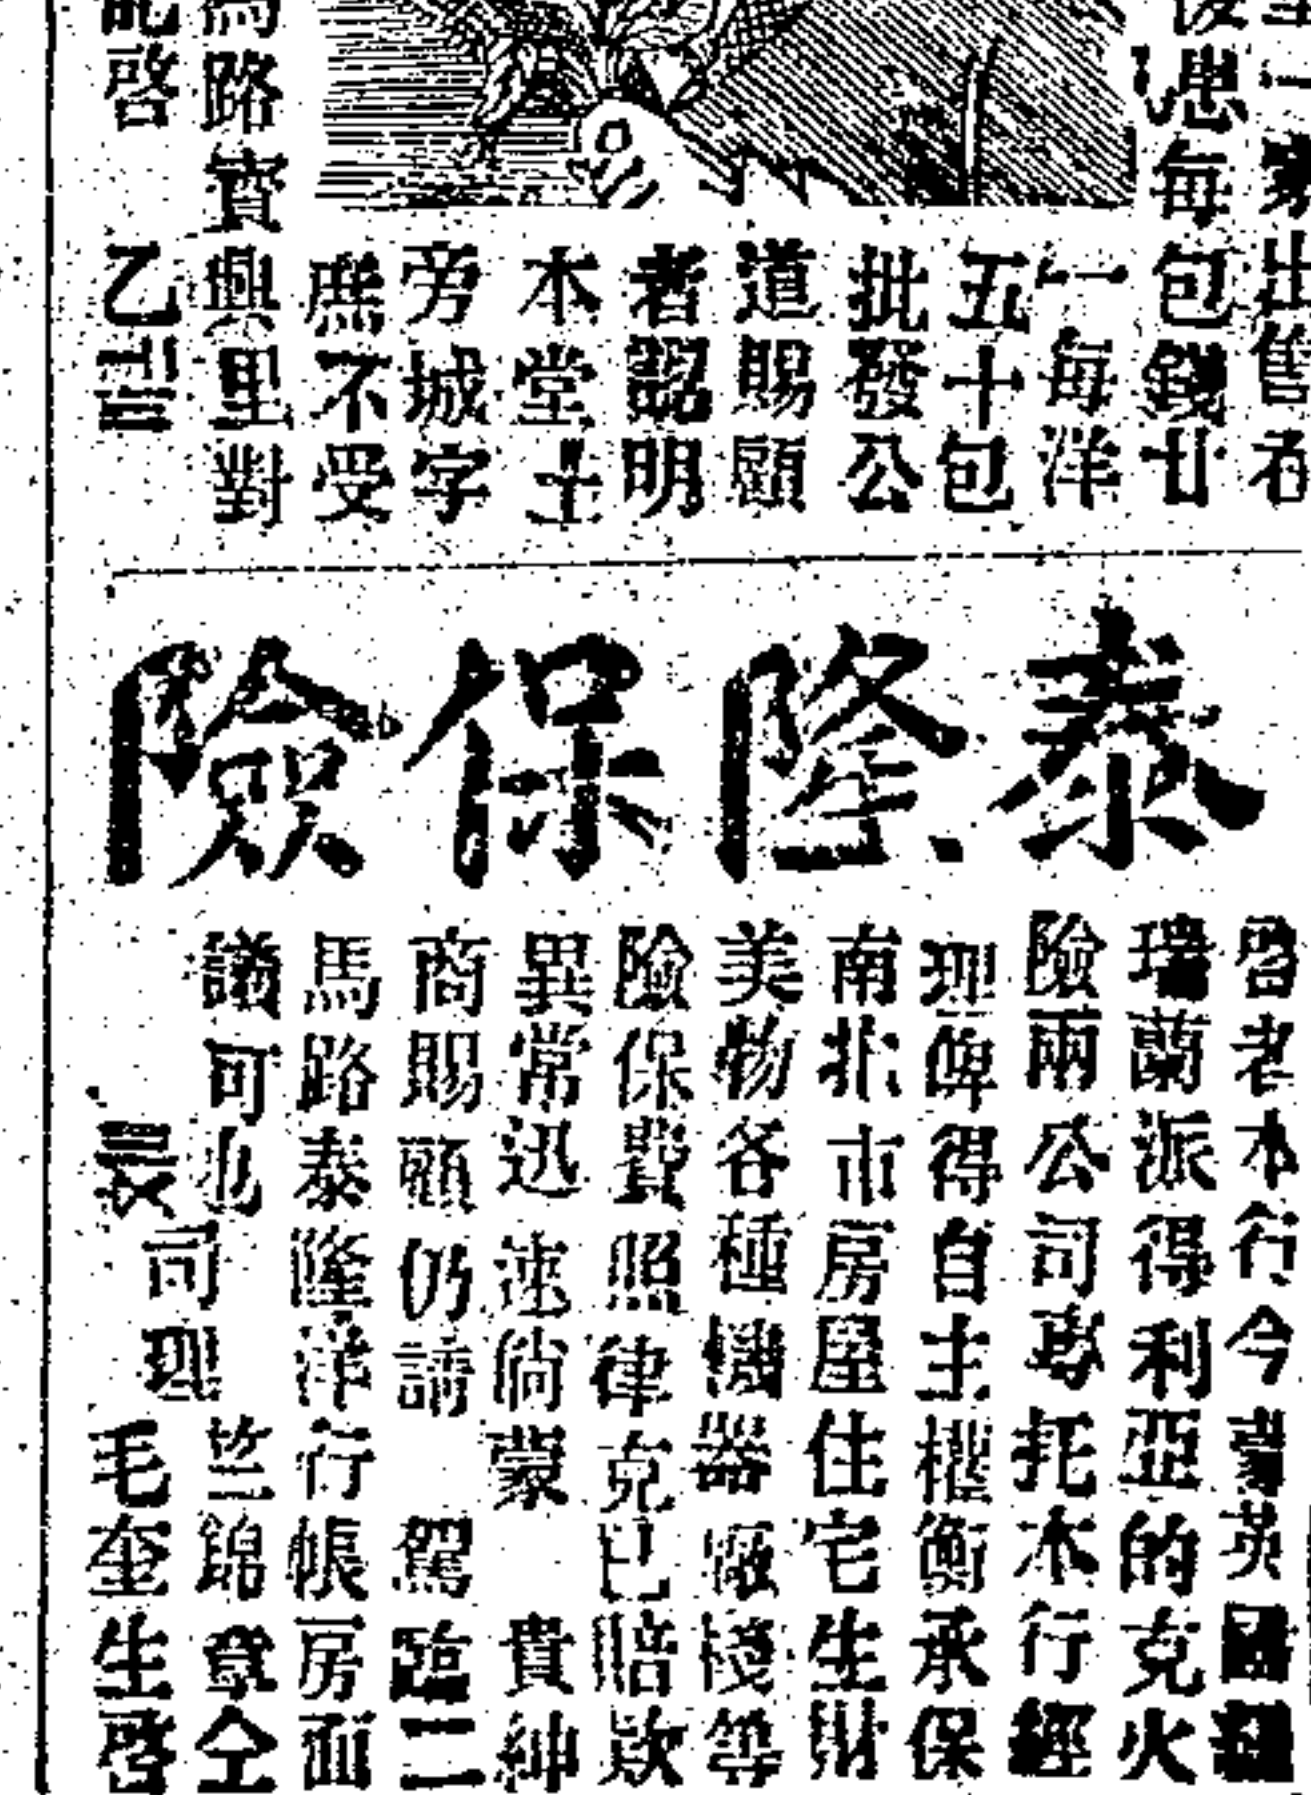 一家出售者
患每包錢廿
一每洋
五十包
批發公
道賜顧
者認明
本堂主
旁城字
庶不受
馬路寶興里對
啓 乙
泰隆保險
啓者本行今蒙英國
瑞蘭派得利亞的克火
險兩公司專托本行經
理俾得自主權衡承保
南北市房屋住宅生財
美物各種機器廠棧等
險保費照律克已賠欵
異常迅速倘蒙 貴紳
商賜顧仍請 駕臨二
馬路泰隆洋行帳房面
議可也 竺錦章仝
司理
長 毛奎生啓